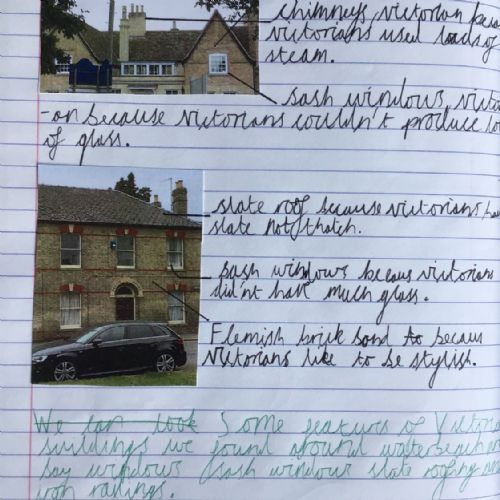 chimneys victorian
victorians used loads of
steam.
sash windows
-an because victorians couldn't produce
of glass.
slate roof because victorians
slate not thatch.
sash windows becaus victorians
did'nt have much glass.
Flemish brick bond to becaus
victorians like to be stylish.
We can look Some features of
buildings we found around waterbeach
bay windows sash windows slate roofing
iron railings.